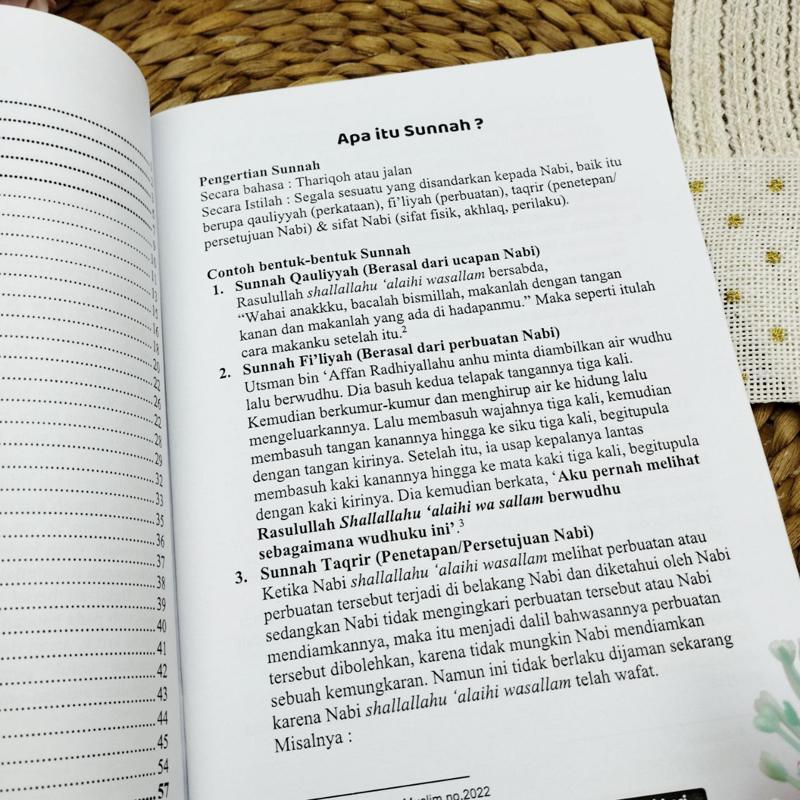 28
29
32
33
35
36
37
38
39
40
41
42
43
44
45
54
57
Apa itu Sunnah ?
Pengertian Sunnah
Secara bahasa : Thariqoh atau jalan
Secara Istilah : Segala sesuatu yang disandarkan kepada Nabi, baik itu
berupa qauliyyah (perkataan), fi’liyah (perbuatan), taqrir (penetepan/
persetujuan Nabi) & sifat Nabi (sifat fisik, akhlaq, perilaku).
Contoh bentuk-bentuk Sunnah
1. Sunnah Qauliyyah (Berasal dari ucapan Nabi)
Rasulullah shallallahu ‘alaihi wasallam bersabda,
“Wahai anakkku, bacalah bismillah, makanlah dengan tangan
kanan dan makanlah yang ada di hadapanmu.” Maka seperti itulah
cara makanku setelah itu.2
2. Sunnah Fi’liyah (Berasal dari perbuatan Nabi)
Utsman bin ‘Affan Radhiyallahu anhu minta diambilkan air wudhu
lalu berwudhu. Dia basuh kedua telapak tangannya tiga kali.
Kemudian berkumur-kumur dan menghirup air ke hidung lalu
mengeluarkannya. Lalu membasuh wajahnya tiga kali, kemudian
membasuh tangan kanannya hingga ke siku tiga kali, begitupula
dengan tangan kirinya. Setelah itu, ia usap kepalanya lantas
membasuh kaki kanannya hingga ke mata kaki tiga kali, begitupula
dengan kaki kirinya. Dia kemudian berkata, ‘Aku pernah melihat
Rasulullah Shallallahu ‘alaihi wa sallam berwudhu
sebagaimana wudhuku ini’.3
3. Sunnah Taqrir (Penetapan/Persetujuan Nabi)
Ketika Nabi shallallahu ‘alaihi wasallam melihat perbuatan atau
perbuatan tersebut terjadi di belakang Nabi dan diketahui oleh Nabi
sedangkan Nabi tidak mengingkari perbuatan tersebut atau Nabi
mendiamkannya, maka itu menjadi dalil bahwasannya perbuatan
tersebut dibolehkan, karena tidak mungkin Nabi mendiamkan
sebuah kemungkaran. Namun ini tidak berlaku dijaman sekarang
karena Nabi shallallahu ‘alaihi wasallam telah wafat.
Misalnya :
no.2022